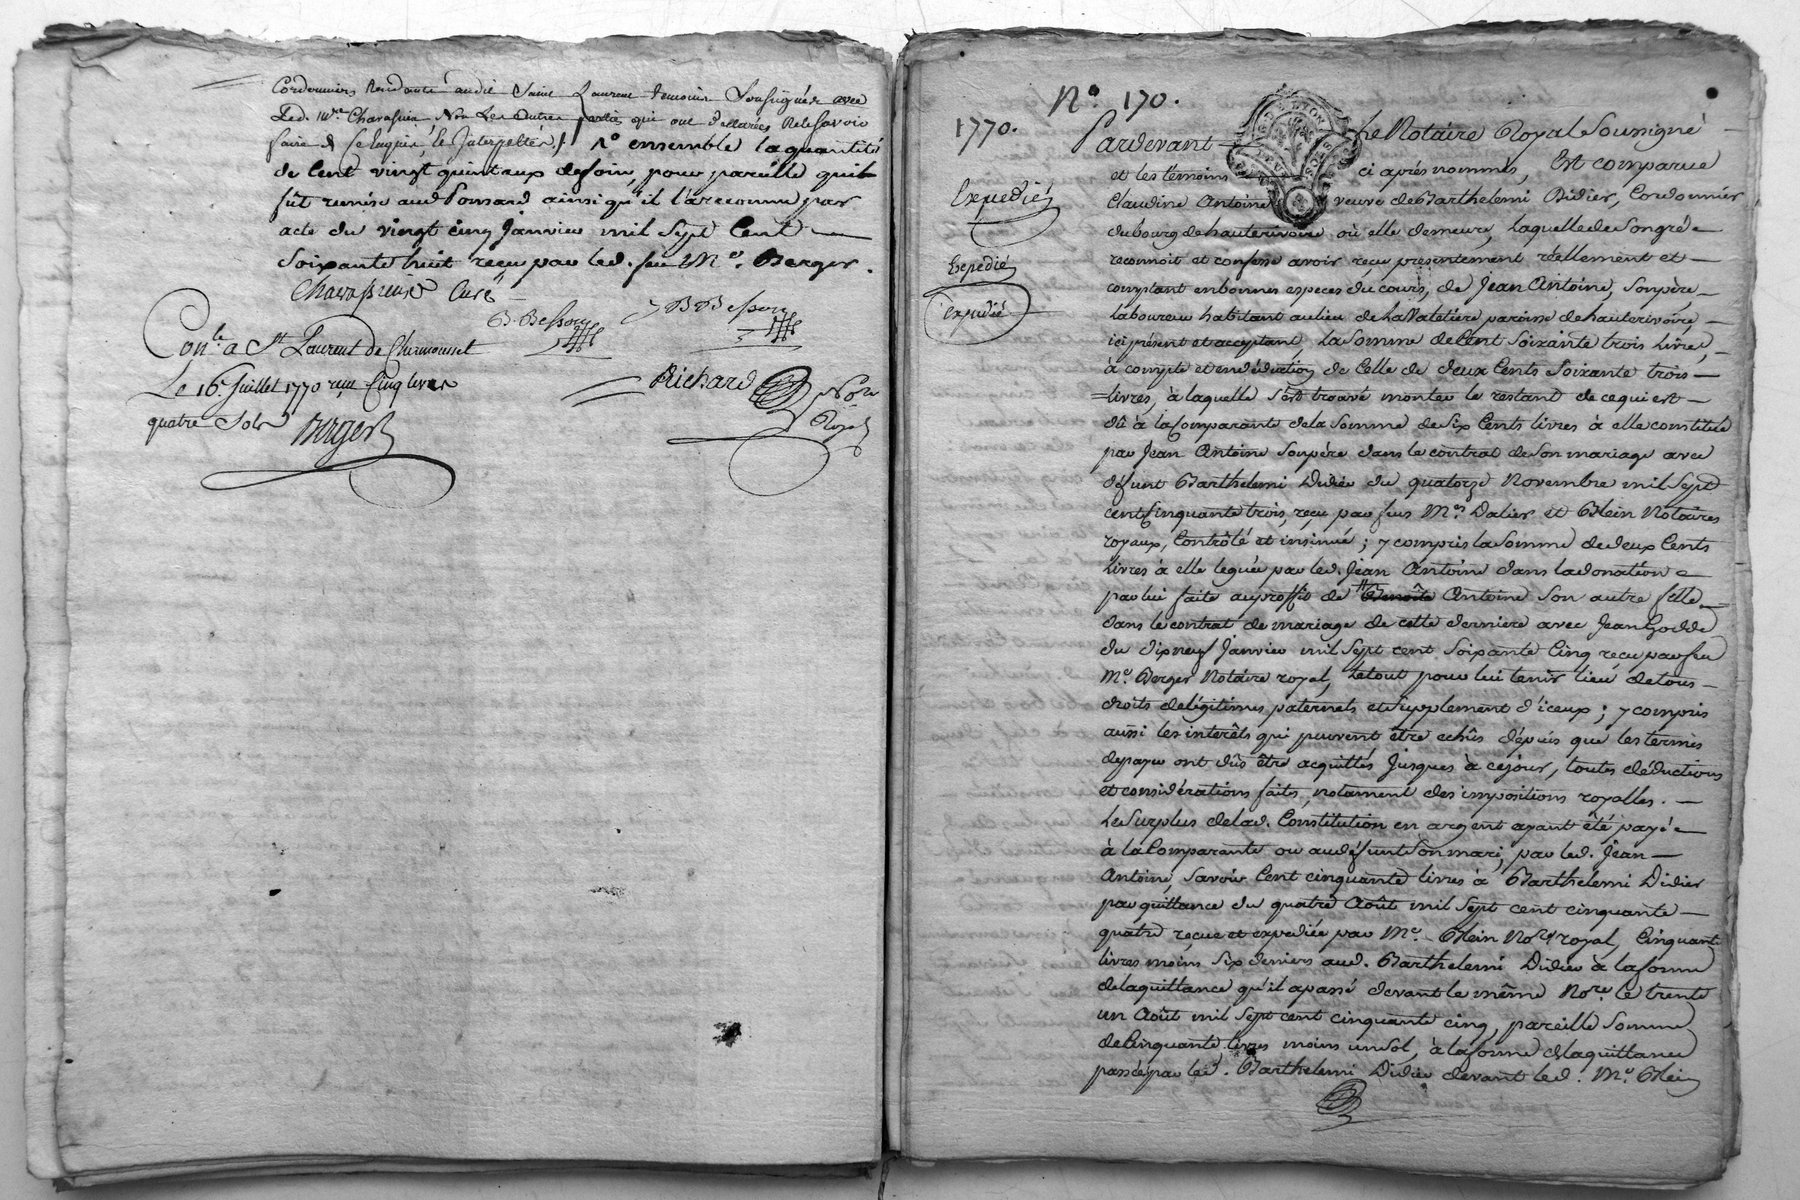 Cordonnier Residant audit Saint Laurent temoins Soussignés avec
Led. Mre. Chavassieu Non Les autres parties qui ont déclarés ne le Savoir
faire de ce enquis, et Interpellés / 1o ensemble la quantité
de Cent vingt quintaux de foin, pour pareille quil
fût remise aud Ponsard ainsi qu'il l'a reconnu par
acte du vingt cinq Janvier mil Sept Cent
Soixante huit reçu par led. feu Me. Berger.
Chavassieux Curé
B. Bessory B B essory
Conle. a St Laurent de Chamousset
Le 16e Juillet 1770 reçu Cinq livres
quatre Sols Berger
Richard Nore
Royal
No. 170.
1770.
Pardevant Le Notaire Royal Soussigné
et les témoins ci après nommés, Est comparue
Claudine Antoine veuve de Barthelemi Didier, Cordonnier
du bourg de hauterivoire où elle demeure, laquelle de Son gré
reconnoit et confesse avoir reçu presentement réellement et
comptant en bonnes especes du cours, de Jean Antoine, Son père,
laboureur habitant au lieu de la Valetière paroisse de hauterivoire,
ici présent et acceptant, la Somme de Cent Soixante trois Livres,
à compte et en déduction de Celle de deux Cents Soixante trois
livres, à laquelle S'est trouvé monter le restant de ce qui est
dû à la Comparante de la Somme de Six Cents livres à elle constituée
par Jean Antoine Son père dans le contrat de Son mariage avec
défunt Barthelemi Didier du quatorze Novembre mil Sept
cent Cinquante trois, reçu par feus Mes Dalier et Blein Notaires
royaux, Contrôlé et insinué; y compris la Somme de deux Cents
Livres à elle leguée par led. Jean Antoine dans la donation
par lui faite au proffit de Benoite Antoine Son autre fille
dans le contrat de mariage de cette derniere avec Jean Godde
du dix neuf Janvier mil Sept cent Soixante Cinq reçu par feu
Me. Berger Notaire royal, Le tout pour lui tenir lieu de tous
droits de légitimes paternels et Supplement d'iceux; y compris
aussi les intérêts qui peuvent être echûs dépuis que les termes
de payer ont dûs être acquittés Jusques à ce jour, toutes déductions
et considérations faites, notament des impositions royalles.
Le Surplus de lad. Constitution en argent ayant été payé
à la Comparante ou au défunt Son mari, par led. Jean
Antoine, Savoir Cent cinquante livres à Barthelemi Didier
par quittance du quatre Août mil Sept cent cinquante
quatre reçue et expediée par Me. Blein Nore royal, Cinquante
livres moins Six deniers aud. Barthelemi Didier à la forme
de la quittance qu'il a passé devant le même Nore. le trente
un Août mil Sept cent cinquante cinq, pareille Somme
de Cinquante livres moins un Sol, à la forme de la quittance
passée par led. Barthelemi Didier devant led. Me. Blein
Expedié
Expedié
expedié